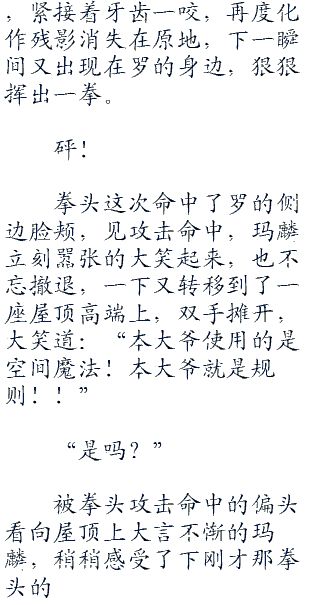 ，紧接着牙齿一咬，再度化
作残影消失在原地，下一瞬
间又出现在罗的身边，狠狠
挥出一拳。
砰！
拳头这次命中了罗的侧
边脸颊，见攻击命中，玛麟
立刻嚣张的大笑起来，也不
忘撤退，一下又转移到了一
座屋顶高端上，双手摊开，
大笑道：“本大爷使用的是
空间魔法！本大爷就是规
则！！”
“是吗？”
被拳头攻击命中的偏头
看向屋顶上大言不惭的玛
麟，稍稍感受了下刚才那拳
头的